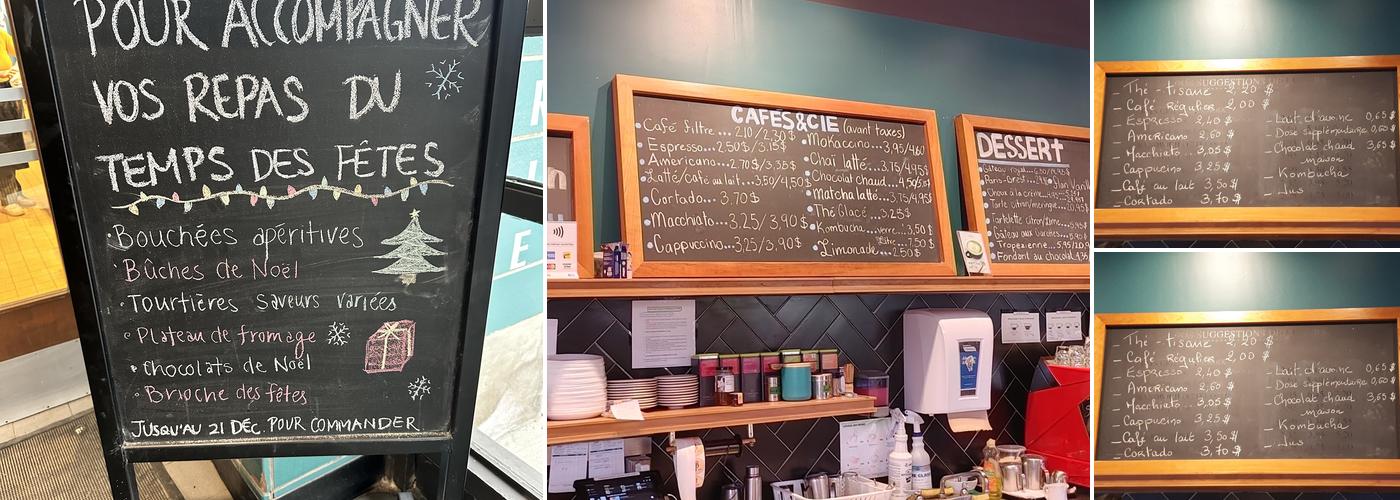 POUR ACCOMPAGNER
VOS REPAS DU
TEMPS DES FÊTES
• Bouchées apéritives
• Bûches de Noël
• Tourtières saveurs variées
• Plateau de fromage
• Chocolats de Noël
• Brioche des fêtes
JUSQU'AU 21 DÉC. POUR COMMANDER
CAFÉS & CIE (avant taxes)
Café filtre... 2,10/2,30$
Espresso... 2,50$/3,15$
Américano... 2,70$/3,35$
Latté/Café au lait... 3,50/4,50$
Cortado... 3,70$
Macchiato... 3,25/3,90$
Cappuccino... 3,25/3,90$
Mokaccino... 3,95/4,60
Chaï latté... 3,75/4,95$
Chocolat chaud... 4,50/5,5$
Matcha latté... 3,75/4,95$
Thé Glacé... 3,25$
Kombucha... verre... 3,50$
Limonade... 2,50$
DESSERT
Choux à la crème
Tarte citron/meringue
Tartelette citron/lime
Gâteau aux carottes
Tropézienne... 5,95/
Fondant au chocolat
SUGGESTION
Thé - tisane 2,20 $
- Café Régulier 2,00 $
- Espresso 2,40 $
- Americano 2,60 $
- Macchiato 3,05$
- Cappucino 3,25$
- Café au lait 3,50$
- Cortado 3,70 $
- Lait d'avoine 0,65$
- Dose supplémentaire 0,60$
- Chocolat chaud 3,65$
maison
- Kombucha
- Jus
SUGGESTION
Thé - tisane 2,20 $
- Café Régulier 2,00 $
- Espresso 2,40 $
- Americano 2,60 $
- Macchiato 3,05$
- Cappucino 3,25$
- Café au lait 3,50$
- Cortado 3,70 $
- Lait d'avoine 0,65$
- Dose supplémentaire 0,60$
- Chocolat chaud 3,65$
maison
- Kombucha
- Jus